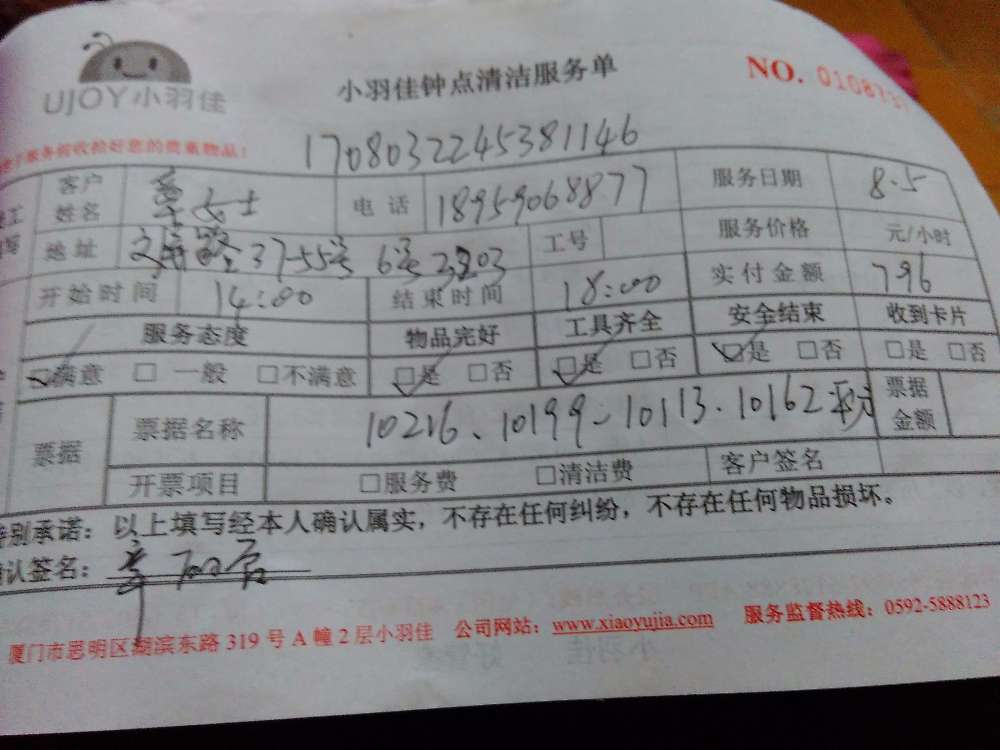 UJOY小羽佳
小羽佳钟点清洁服务单
NO. 01087
服务前收拾好您的贵重物品!
1708032245381146
客户姓名 女士 电话 18959068877 服务日期 8.5
地址 路37-55号 6号 2303 工号 服务价格 元/小时
开始时间 14:00 结束时间 18:00 实付金额 796
服务态度 物品完好 工具齐全 安全结束 收到卡片
☑满意 □ 一般 □不满意 ☑是 □否 ☑是 □否 ☑是 □否 □是 □否
票据 票据名称 10216、10199、10113、10162 票据金额
开票项目 □服务费 □清洁费 客户签名
特别承诺：以上填写经本人确认属实，不存在任何纠纷，不存在任何物品损坏。
确认签名：
厦门市思明区湖滨东路 319 号 A 幢 2 层小羽佳 公司网站：www.xiaoyujia.com 服务监督热线：0592-5888123